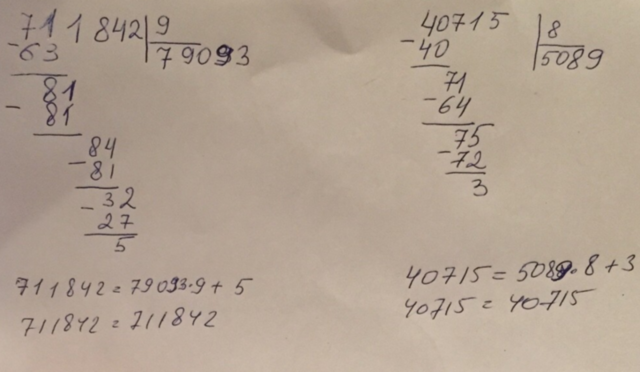 711842 | 9
-63 79093
81
- 81
84
- 81
- 32
27
5
711842 = 79093·9 + 5
711842 = 711842
40715 | 8
- 40 5089
71
- 64
75
- 72
3
40715 = 5089·8 + 3
40715 = 40715